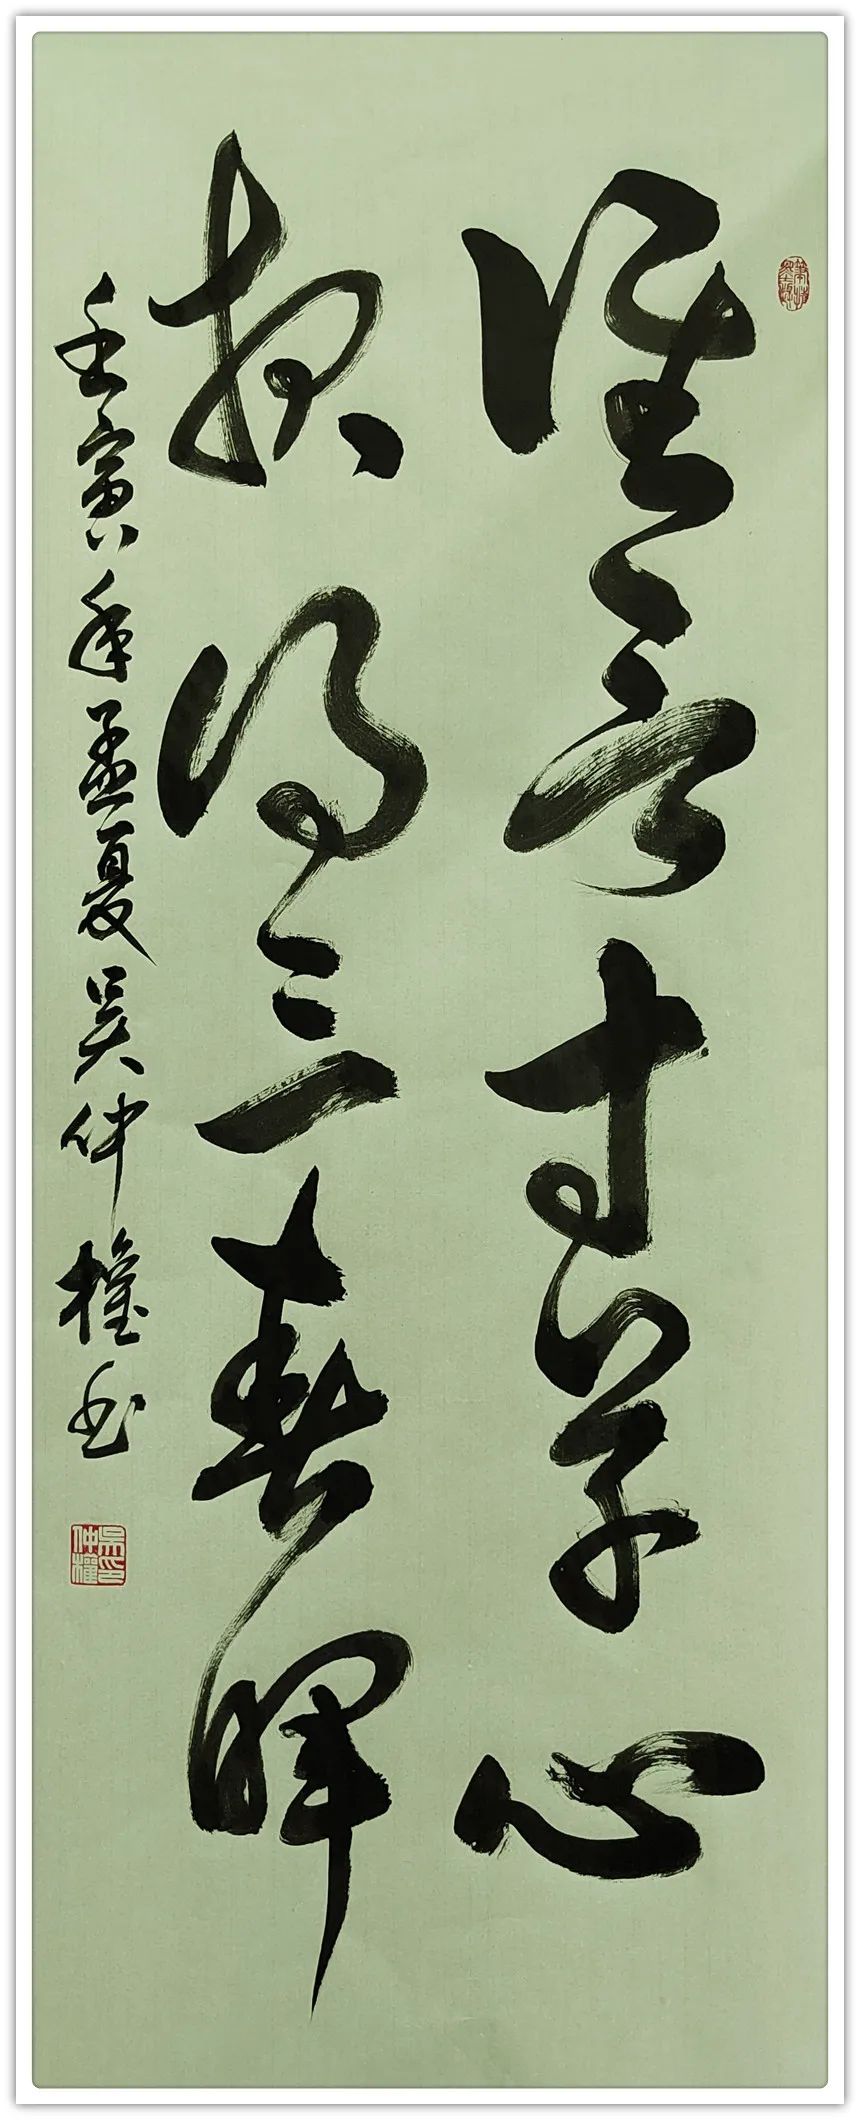 谁言寸草心
报得三春晖
壬寅年孟夏吴仲權书
吴印仲權